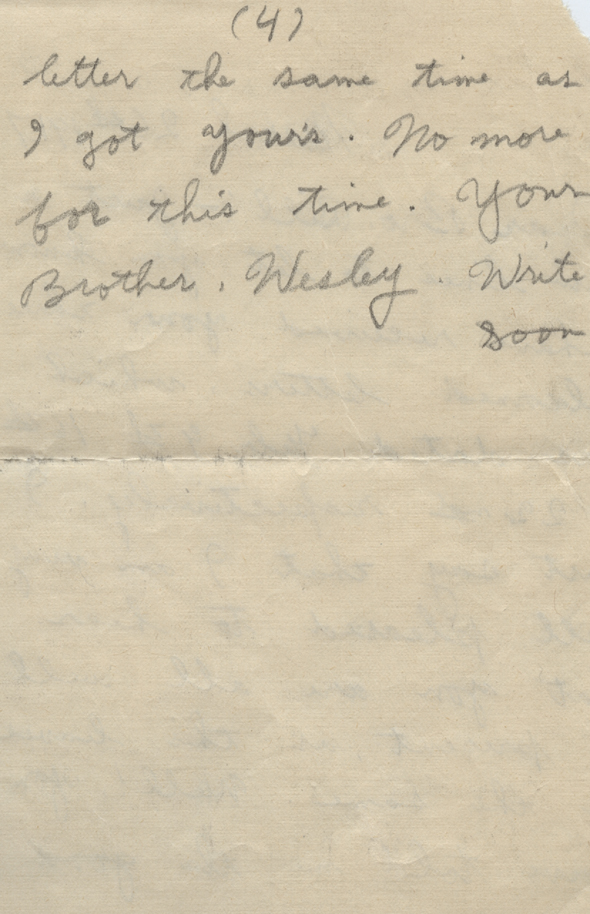 (4)
letter the same time as
I got your's. No more
for this time. Your
Brother. Wesley. Write
soon